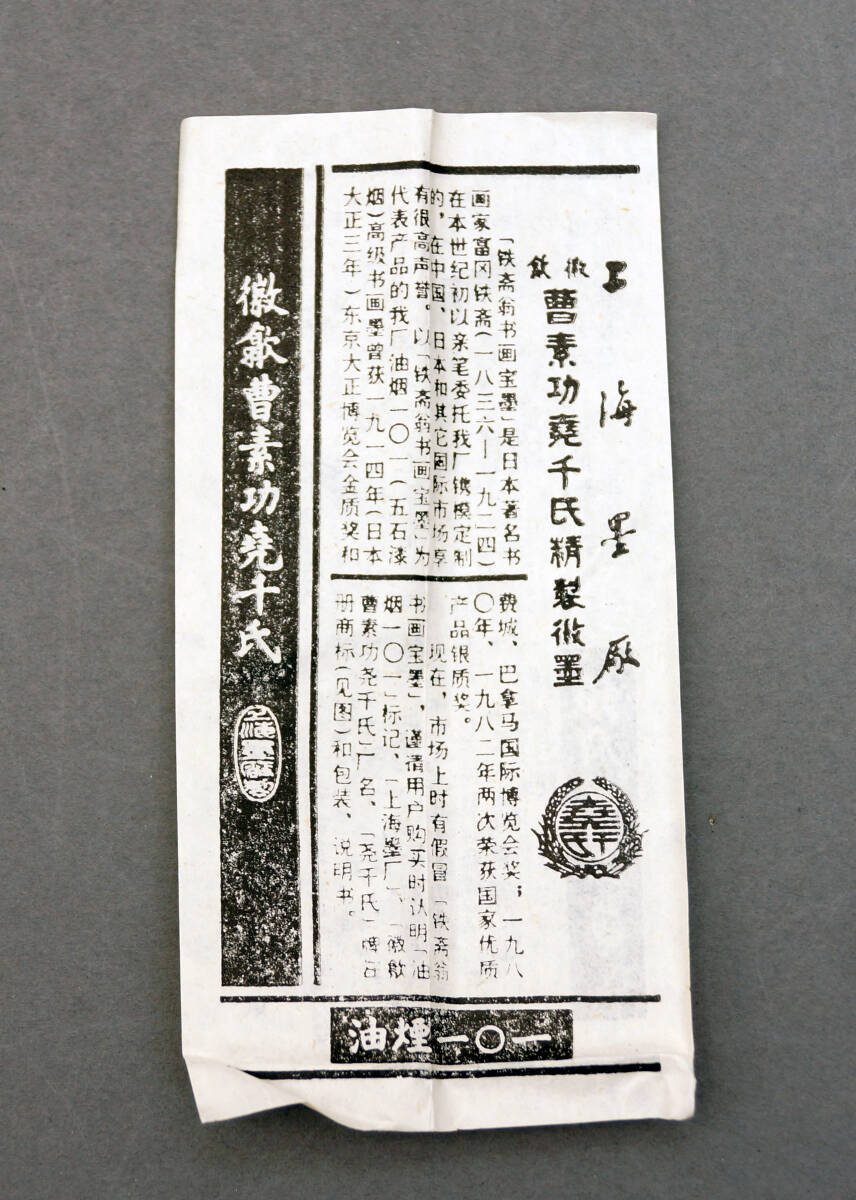 上海墨厂
徽歙
曹素功堯千氏精製徽墨
堯千氏
「铁斋翁书画宝墨」是日本著名书
画家富冈铁斋(一八三六—一九二四)
在本世纪初以亲笔委托我厂镌模定制
的,在中国、日本和其它国际市场享
有很高声誉。以「铁斋翁书画宝墨」为
代表产品的我厂油烟一〇一(五石漆
烟)高级书画墨曾获一九一四年(日本
大正三年)东京大正博览会金质奖和
费城、巴拿马国际博览会奖;一九八
〇年、一九八二年两次荣获国家优质
产品银质奖。
现在,市场上时有假冒「铁斋翁
书画宝墨」,谨请用户购买时认明「油
烟一〇一」标记、「上海墨厂」、「徽歙
曹素功尧千氏」厂名、「尧千氏」牌注
册商标(见图)和包装、说明书。
徽歙曹素功堯千氏
油煙一〇一